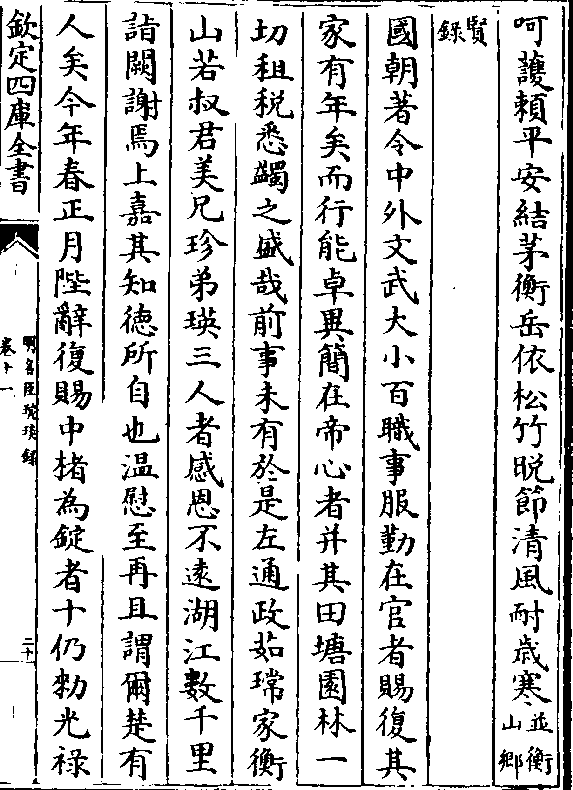 呵護頼平安結茅衡岳依松竹晩節清風耐歳寒並衡山鄉
賢録
國朝著令中外文武大小百職事服勤在官者賜復其
家有年矣而行能卓異簡在帝心者并其田塘園林一
切租税悉蠲之盛哉前事未有於是左通政茹瑺家衡
山若叔君美兄珍弟瑛三人者感恩不逺湖江數千里
詣闕謝焉上嘉其知徳所自也温慰至再且謂爾楚有
人矣今年春正月陛辭復賜中楮為錠者十仍勑光禄
欽定四庫全書
明名臣琬琰録
卷十一
二十